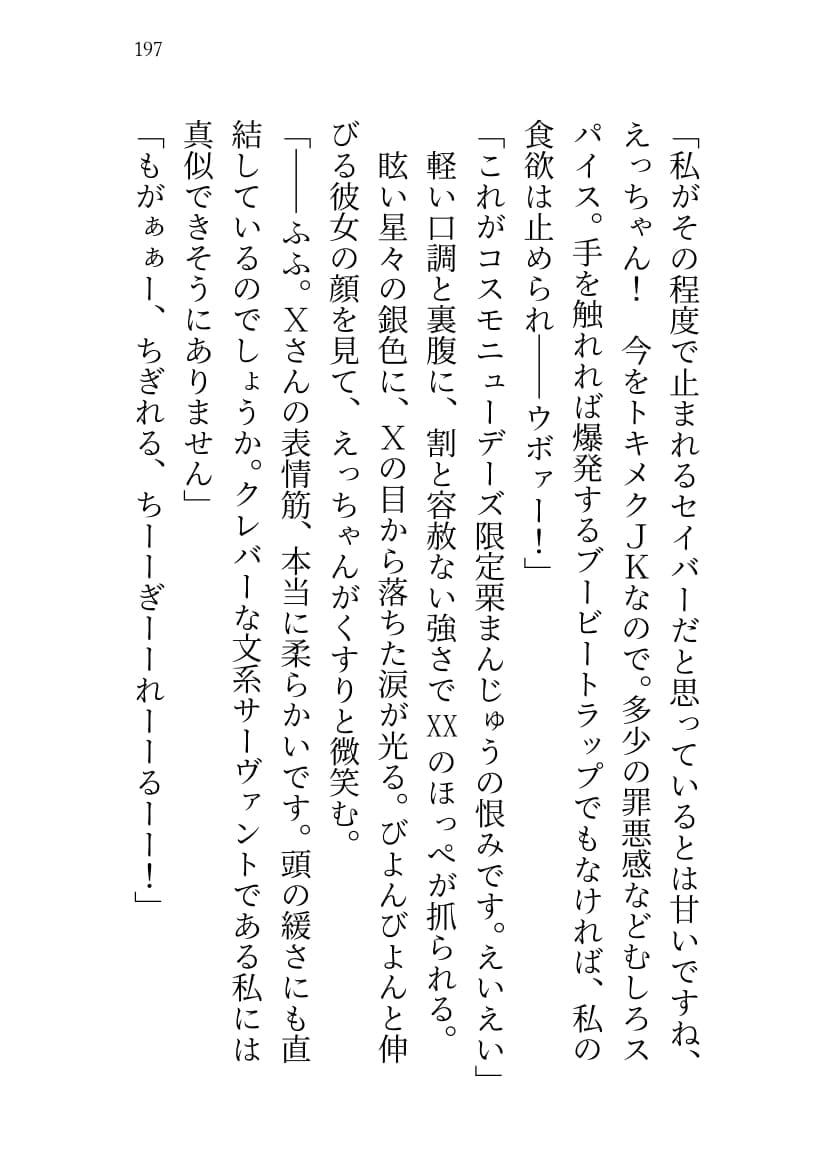 197
「私がその程度で止まれるセイバーだと思っているとは甘いですね、
えっちゃん！　今をトキメクＪＫなので。多少の罪悪感などむしろス
パイス。手を触れれば爆発するブービートラップでもなければ、私の
食欲は止められ――ウボァー！」
「これがコスモニューデーズ限定栗まんじゅうの恨みです。えいえい」
　軽い口調と裏腹に、割と容赦ない強さで XX のほっぺが抓られる。
　眩い星々の銀色に、Ｘの目から落ちた涙が光る。びよんびよんと伸
びる彼女の顔を見て、えっちゃんがくすりと微笑む。
「――ふふ。Ｘさんの表情筋、本当に柔らかいです。頭の緩さにも直
結しているのでしょうか。クレバーな文系サーヴァントである私には
真似できそうにありません」
「もがぁぁー、ちぎれる、ちーーぎーーれーーるーー！」